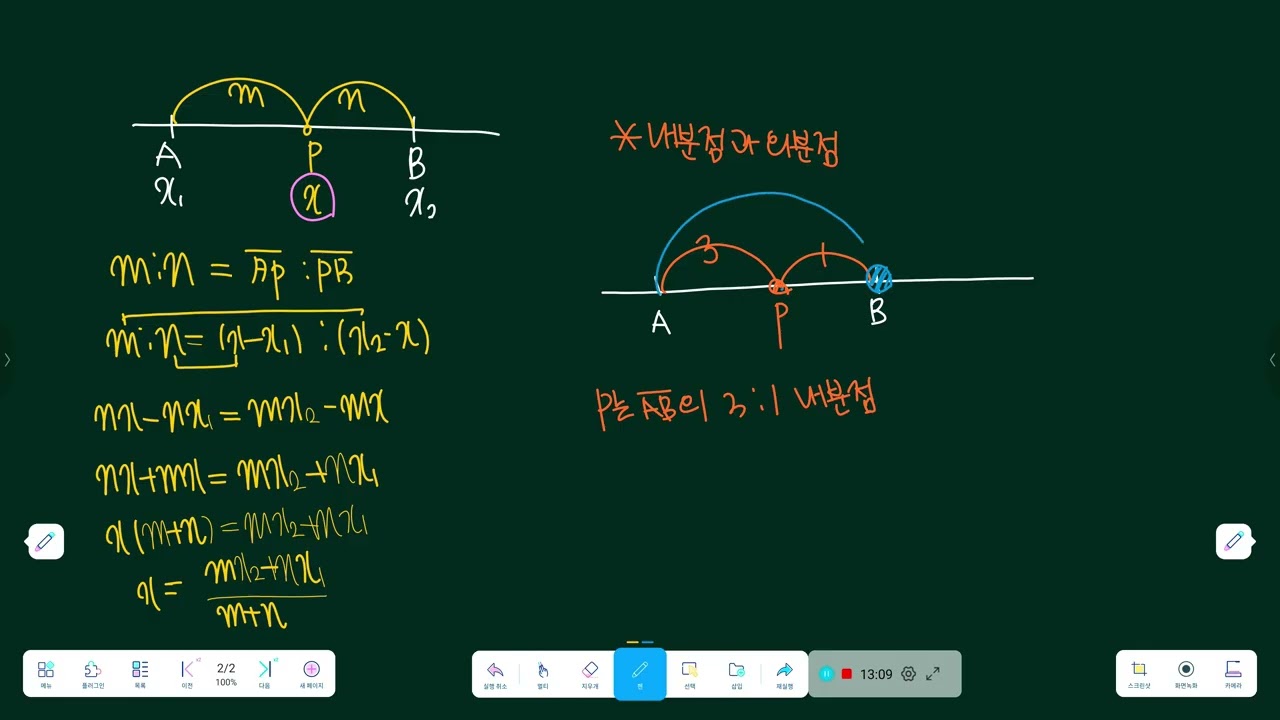 m n
A P B
x₁ x x₂
m:n = AP : PB
m:n = (x-x₁) : (x₂-x)
nx-nx₁ = mx₂-mx
nx+mx = mx₂+nx₁
x(m+n) = mx₂+nx₁
x = mx₂+nx₁
m+n
* 내분점과 외분점
3 1
A P B
P는 AB의 3:1 내분점
메뉴 플러그인 목록 이전 2/2 100% 다음 새 페이지
실행 취소 멀티 지우개 펜 선택 삽입 재실행
13:09
스크린샷 화면녹화 카메라